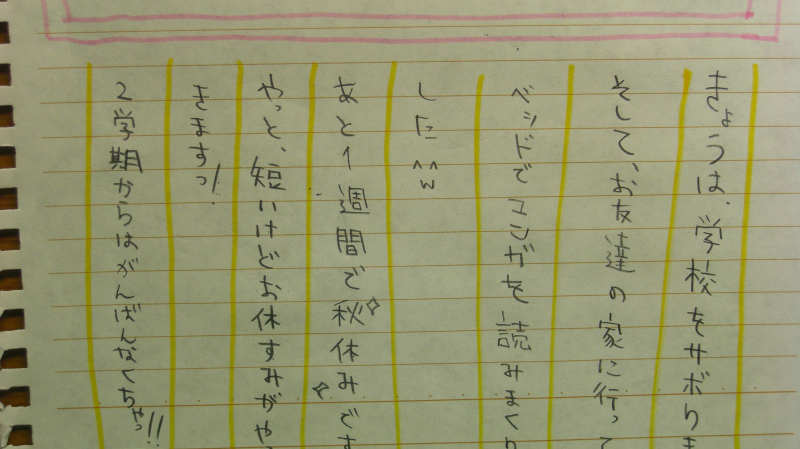 きょうは、学校をサボりま
そして、お友達の家に行って
ベッドでマンガを読みまくり
した^^w
あと1週間で秋休みです
やっと、短いけどお休すみがやっ
きますっ!
2学期からはがんばんなくちゃっ!!